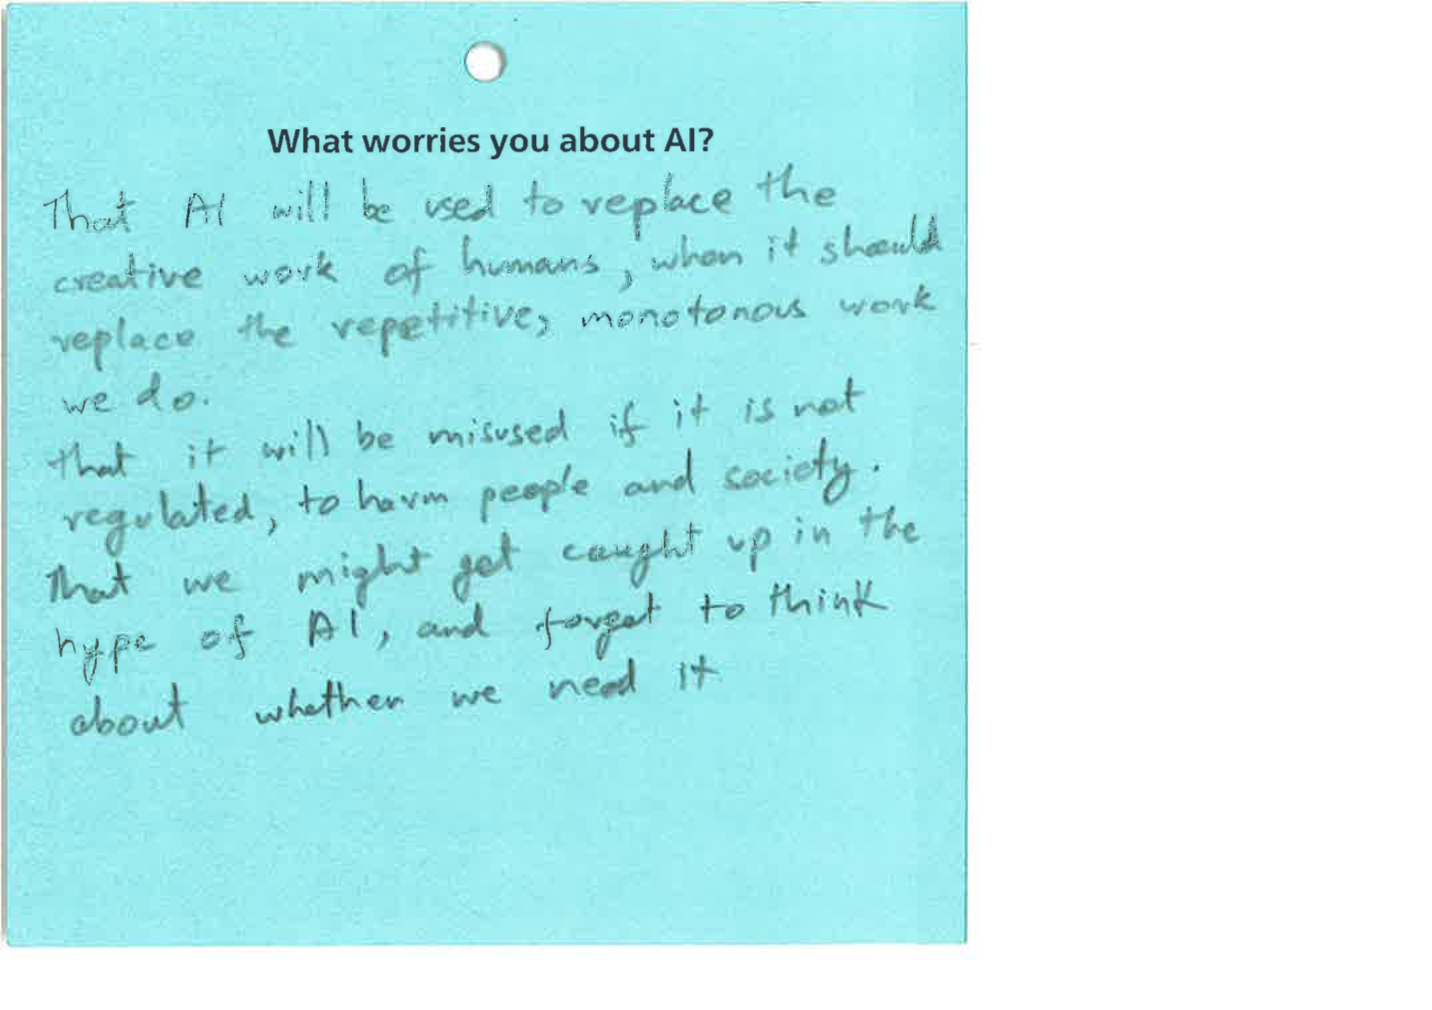 What worries you about AI?
That AI will be used to replace the
creative work of humans, when it should
replace the repetitive, monotonous work
we do.
That it will be misused if it is not
regulated, to harm people and society.
That we might get caught up in the
hype of AI, and forget to think
about whether we need it